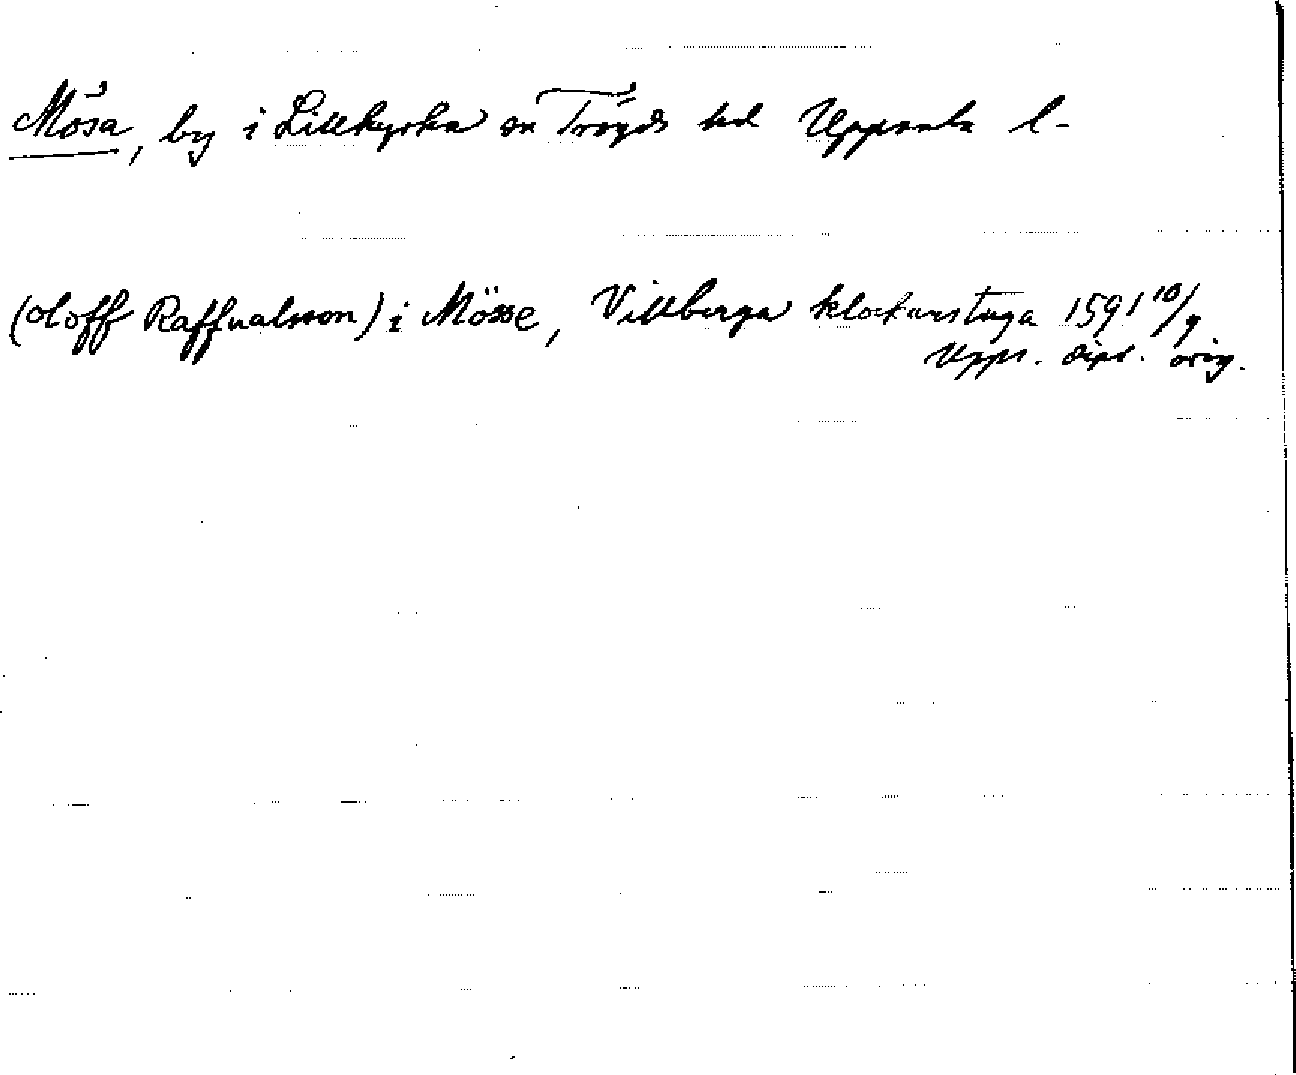 Mösa, by i Lillkyrka sn Trögds hd Uppsala l-
(oloff Raffualsson) i Mösse, Villberga klockarstuga 1591 10/9
Upps. dipl. orig.